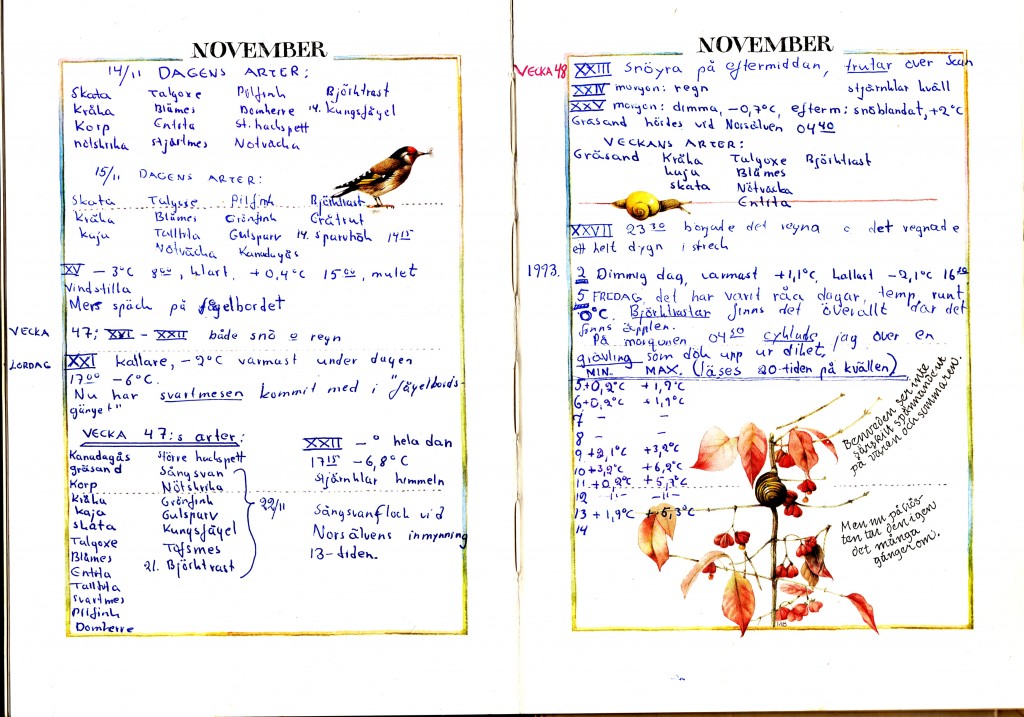 NOVEMBER
14/11 DAGENS ARTER:
Skata Talgoxe Pilfink Björktrast
Kråka Blåmes Domherre 14. Kungsfågel
Korp Entita St. hackspett
nötskrika stjärtmes Nötväcka
15/11 DAGENS ARTER:
Skata Talgoxe Pilfink Björktrast
Kråka Blåmes Grönfink Gråtrut
kaja Talltita Gulsparv 14. sparvhök 14 15
Nötväcka Kanadagås
XV – 3°C 8 00, klart. +0,4°C 15 00, mulet
Vindstilla
Mers späck på fågelbordet
VECKA 47; XVI – XXII både snö o regn
LÖRDAG XXI Kallare, –2°C varmast under dagen
17 00 –6°C.
Nu har svartmesen kommit med i "fågelbords-
gänget"
VECKA 47:s arter:
Kanadagås Större hackspett
gräsand Sångsvan
Korp Nötskrika
Kråka Grönfink
Kaja Gulsparv
skata Kungsfågel
Talgoxe Tofsmes
Blåmes 21. Björktrast
Entita
Talltita
svartmes
Pilfink
Domherre
22/11
XXII – ° hela dan
17 15 –6,8°C
stjärnklar himmeln
Sångsvanflock vid
Norsälvens inmynning
13-tiden.
NOVEMBER
VECKA 48 XXIII Snöyra på eftermiddan, trutar över
XXIV morgon: regn stjärnklar kväll
XXV morgon: dimma, –0,7°C, efterm: snöblandat, +2°C
Gräsand hördes vid Norsälven 04 40
VECKANS ARTER:
Gräsand Kråka Talgoxe Björktrast
kaja Blåmes
skata Nötväcka
Entita
XXVII 23 30 började det regna o det regnade
ett helt dygn i streck
1993. 2 Dimmig dag, varmast +1,1°C, kallast –2,1°C
5 FREDAG, det har varit råa dagar, temp, runt
0°C. Björktrastar finns det överallt där det
finns äpplen.
På morgonen 04 50 cyklade jag över en
grävling som dök upp ur diket,
MIN. MAX. (läses 20-tiden på kvällen)
5 +0,2°C +1,9°C
6 +0,2°C +1,9°C
7 – –
8 – –
9 +2,1°C +3,2°C
10 +3,2°C +6,2°C
11 +0,2°C +5,3°C
12 –11– –11–
13 +1,9°C +5,3°C
14
Benveden ser inte
särskilt spännande ut
på våren och sommaren.
Men nu på hös-
ten tar den igen
det många
gånger om.
MB